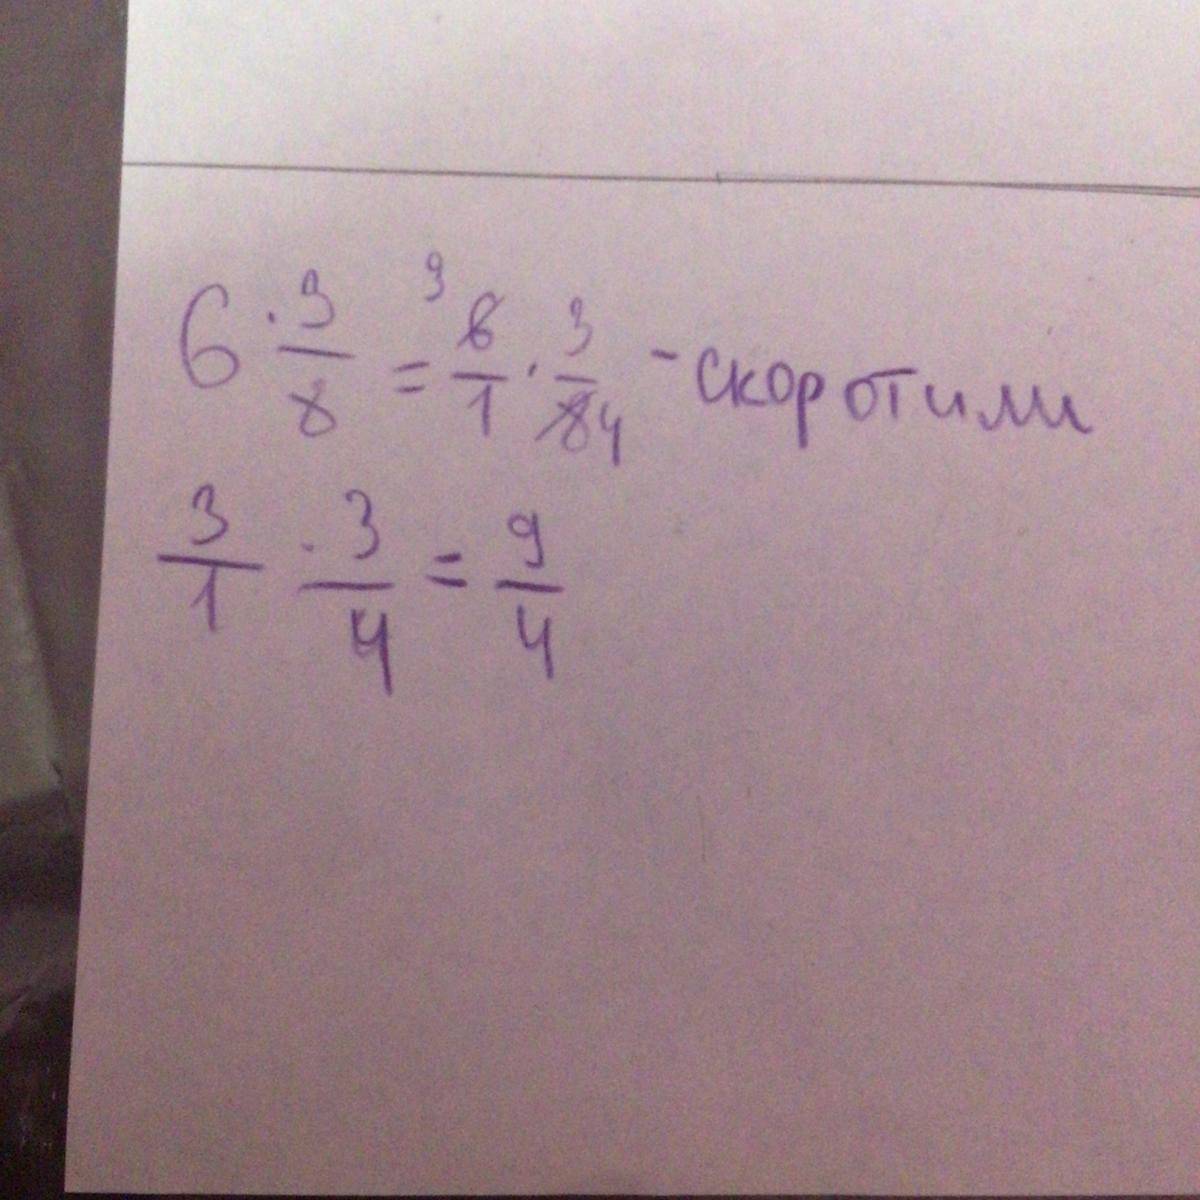 6 · 3/8 = ³6/1 · 3/8 4 - скоротили
3/1 · 3/4 = 9/4